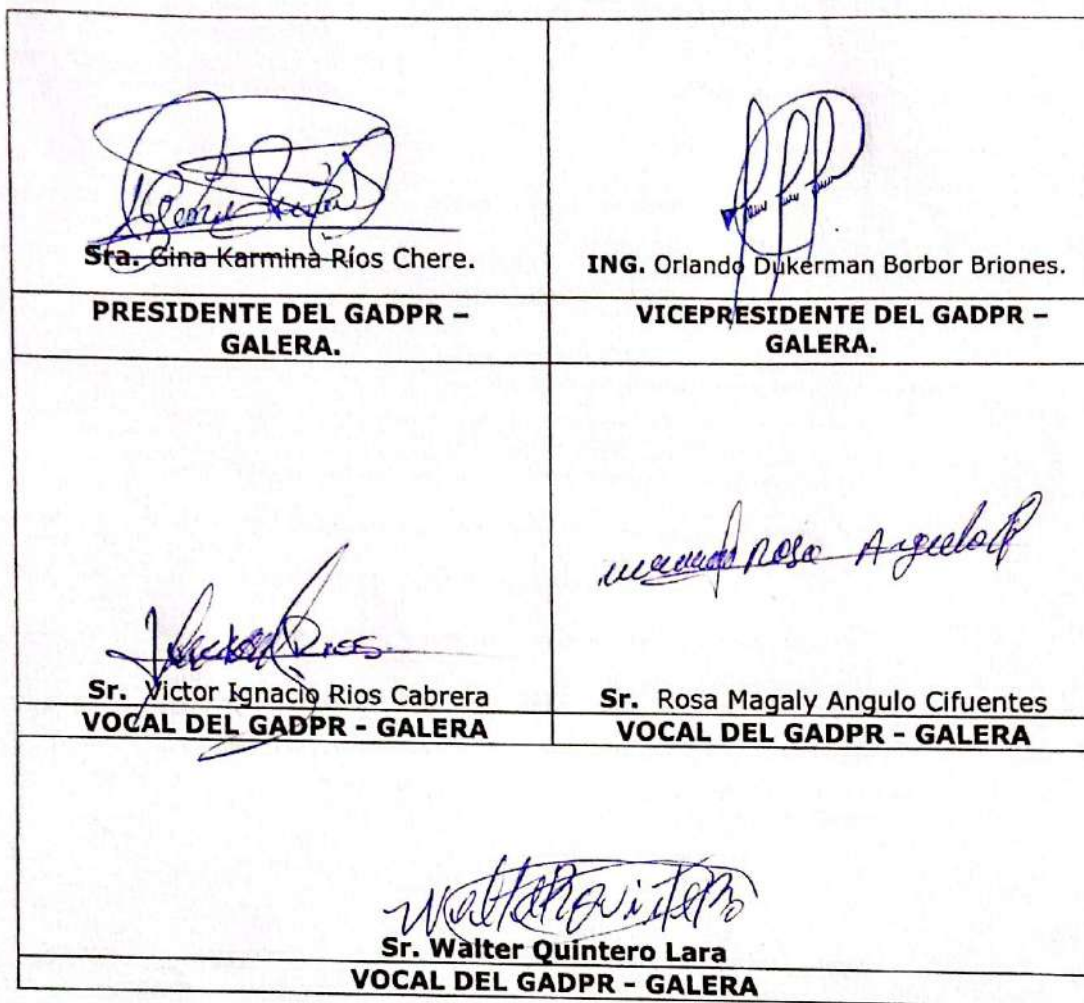 Sra. Gina Karmina Ríos Chere.
ING. Orlando Dukerman Borbor Briones.
PRESIDENTE DEL GADPR –
GALERA.
VICEPRESIDENTE DEL GADPR –
GALERA.
Rios.
Rosa Angulo
Sr. Victor Ignacio Rios Cabrera
Sr. Rosa Magaly Angulo Cifuentes
VOCAL DEL GADPR - GALERA
VOCAL DEL GADPR - GALERA
Walter Quintero
Sr. Walter Quintero Lara
VOCAL DEL GADPR - GALERA